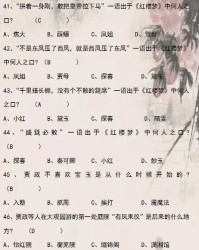 41、"拼着一身剐，敢把皇帝拉下马"一语出于《红楼梦》中何人
之口？（ ）
A、焦大 B、 C、凤姐 D、
42、"不是东风压了西风，就是西风压了东风"一语出于《红楼梦》
中何人之口？（ ）
A、凤姐 B、贾母 C、探春 D、
43、"千里搭长棚，没有个不散的筵席"出于《红楼梦》中何人之
口？（ ）
A、小红 B、黛玉 C、探春 D、晴雯
44、"盛筵必散"一语出于《红楼梦》中何人之口？
（B ）
A、探春 B、秦可卿 C、小红 D、妙玉
45、贾政不喜欢宝玉是从什么时候开始的？
（ B ）
A、入塾 B、抓周 C、挨打 D、魇魔法
46、贾政等人在大观园游的第一处庭院"有凤来仪"是后来的什么地
方？（ D ）
A、怡红院 B、蘅芜院 C、缀锦阁 D、潇湘馆